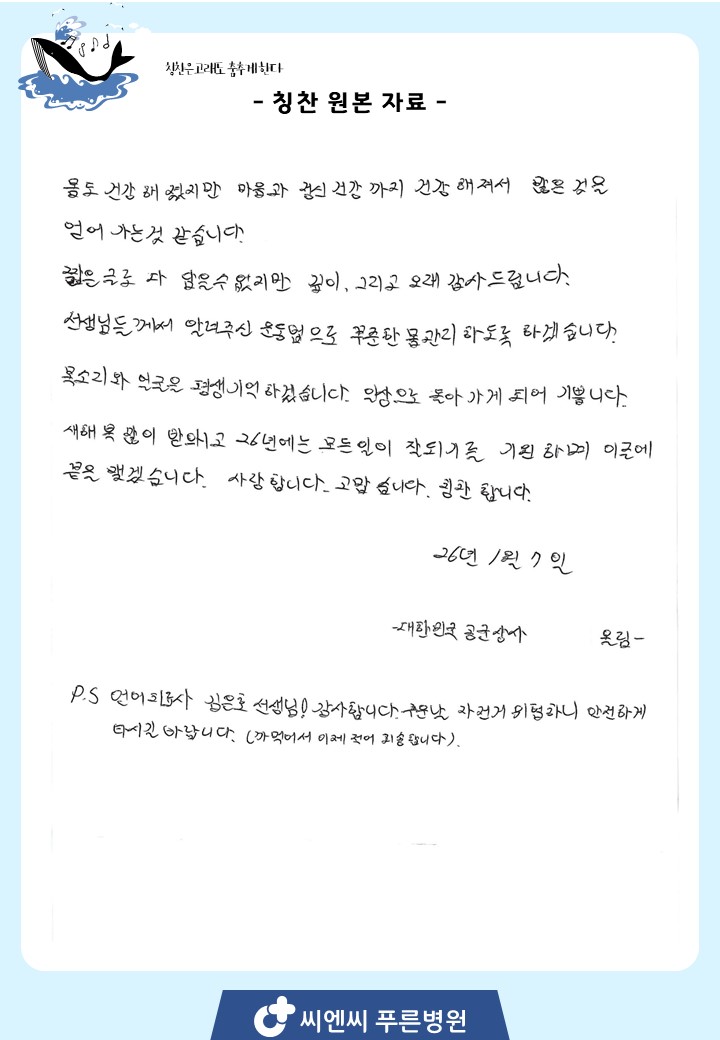 칭찬은고래도 춤추게한다
- 칭찬 원본 자료 -
몸도 건강 해 졌지만 마음과 정신 건강 까지 건강 해져서 많은 것을
얻어 가는것 같습니다.
짧은 글로 다 담을수 없지만 깊이, 그리고 오래 감사드립니다.
선생님들께서 알려주신 운동법으로 꾸준한 몸관리 하도록 하겠습니다.
목소리와 얼굴은 평생기억 하겠습니다. 일상으로 돌아 가게 되어 기쁩니다.
새해 복 많이 받으시고 26년에는 모든일이 잘되기를 기원 하며 이글에
끝을 맺겠습니다. 사랑합니다. 고맙습니다. 칭찬 합니다.
26년 1월 7일
-대한민국 공군상사 올림-
P.S 언어치료사 김은호 선생님! 감사합니다. 추운날 자전거 위험하니 안전하게
타시길 바랍니다. (까먹어서 이제 적어 죄송합니다).
씨엔씨 푸른병원